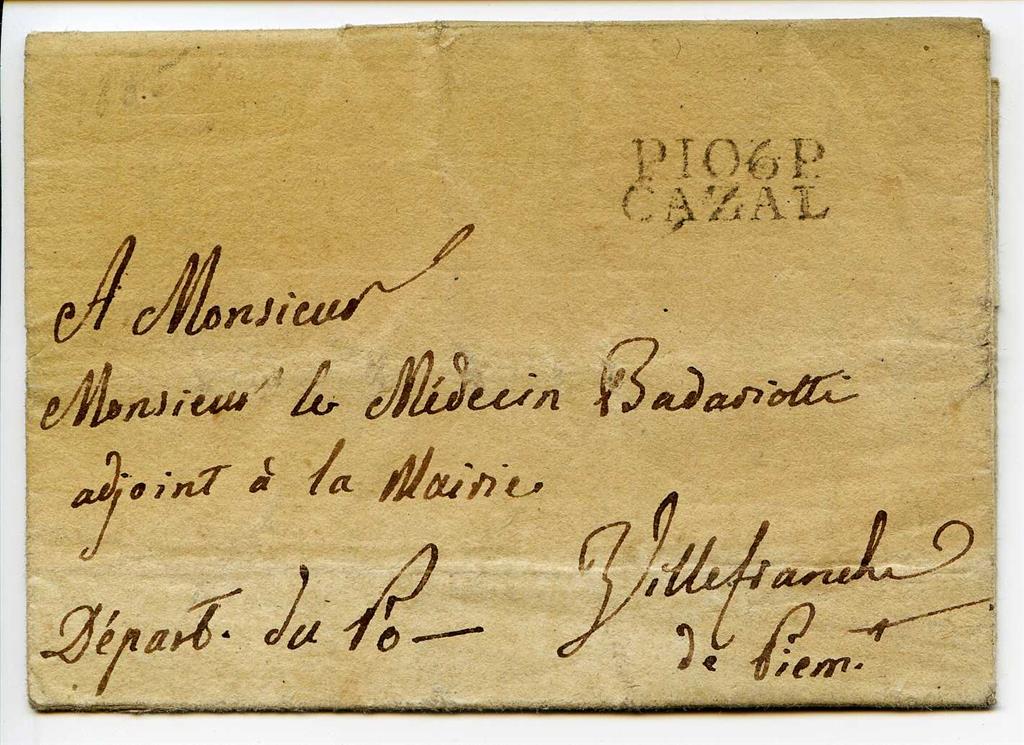 P106P
CAZAL
A Monsieur
Monsieur le Médecin Badariotti
adjoint à la Mairie
Villefranche
Départ. du Pô —
de Piem.t